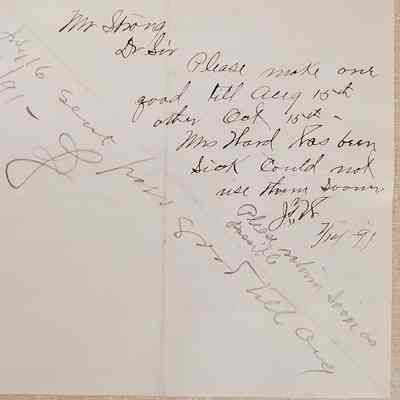 Mr Strong
Dr Sir
Please make one
good till Aug 15th
other Oct 15th -
Mrs Ward has been
Sick Could not
use them Sooner
7/14-91
Please return Soon as
July 16 Sent pass good till Aug
/91 -